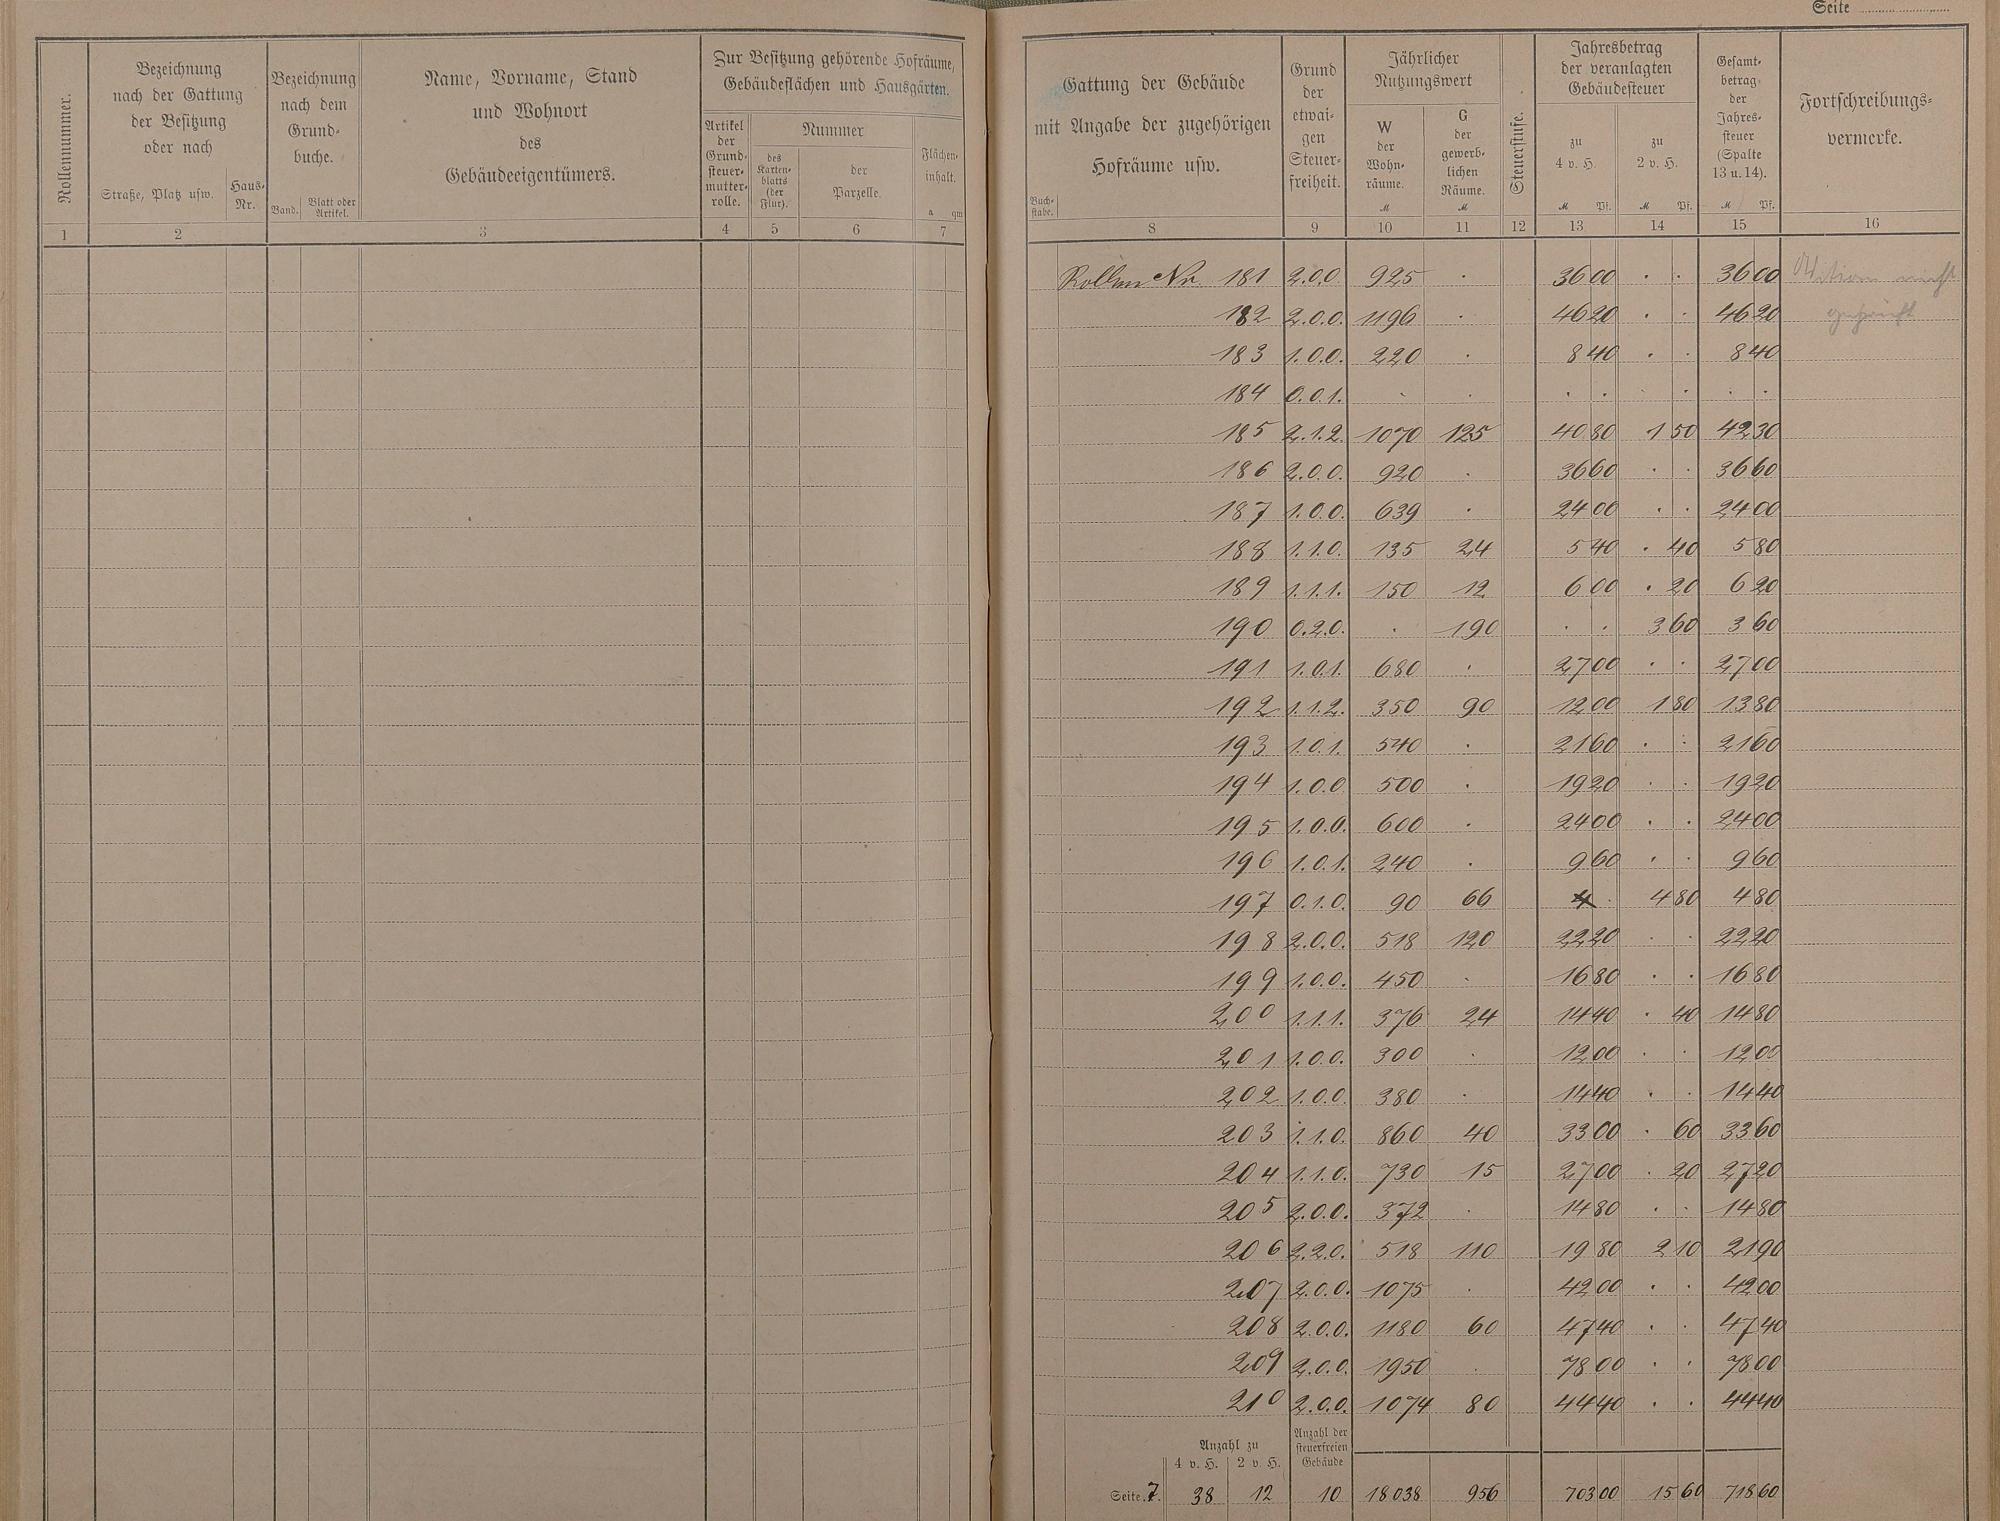 Seite
Rollennummer.
Bezeichnung
nach der Gattung
der Besitzung
oder nach
Straße, Platz usw.
Haus-
Nr.
Bezeichnung
nach dem
Grund-
buche.
Band.
Blatt oder
Artikel.
Name, Vorname, Stand
und Wohnort
des
Gebäudeeigentümers.
Zur Besitzung gehörende Hofräume,
Gebäudeflächen und Hausgärten.
Artikel
der
Grund-
steuer-
mutter-
rolle.
Nummer
des
Karten-
blatts
(der
Flur).
der
Parzelle.
Flächen-
inhalt.
a qm
1 2 3 4 5 6 7
Gattung der Gebäude
mit Angabe der zugehörigen
Hofräume usw.
Buch-
stabe.
Grund
der
etwai-
gen
Steuer-
freiheit.
Jährlicher
Nutzungswert
W
der
Wohn-
räume.
M
G
der
gewerb-
lichen
Räume.
M
Steuerstufe.
Jahresbetrag
der veranlagten
Gebäudesteuer
zu
4 v. H.
M Pf.
zu
2 v. H.
M Pf.
Gesamt-
betrag
der
Jahres-
steuer
(Spalte
13 u. 14).
M Pf.
Fortschreibungs-
vermerke.
8 9 10 11 12 13 14 15 16
Rollen Nr. 181 2.0.0 925 . 36 00 . . 36 00
nicht
182 2.0.0. 1196 . 46 20 . . 46 20
geprüft
183 1.0.0. 220 . 8 40 . . 8 40
184 0.0.1. . . . . . . . .
185 2.1.2. 1070 125 40 80 1 50 42 30
186 2.0.0. 920 . 36 60 . . 36 60
187 1.0.0. 639 . 24 00 . . 24 00
188 1.1.0. 135 24 5 40 . 40 5 80
189 1.1.1. 150 12 6 00 . 20 6 20
190 0.2.0. . 190 . . 3 60 3 60
191 1.0.1. 680 . 27 00 . . 27 00
192 1.1.2. 350 90 12 00 1 80 13 80
193 1.0.1. 540 . 21 60 . . 21 60
194 1.0.0 500 . 19 20 . . 19 20
195 1.0.0. 600 . 24 00 . . 24 00
196 1.0.1. 240 . 9 60 . . 9 60
197 0.1.0. 90 66 4 . 4 80 4 80
198 2.0.0. 518 120 22 20 . . 22 20
199 1.0.0. 450 . 16 80 . . 16 80
200 1.1.1. 376 24 14 40 . 40 14 80
201 1.0.0. 300 . 12 00 . . 12 00
202 1.0.0. 380 . 14 40 . . 14 40
203 1.1.0. 860 40 33 00 . 60 33 60
204 1.1.0. 730 15 27 00 . 20 27 20
205 2.0.0. 372 . 14 80 . . 14 80
206 2.2.0. 518 110 19 80 2 10 21 90
207 2.0.0. 1075 . 42 00 . . 42 00
208 2.0.0. 1180 60 47 40 . . 47 40
209 2.0.0. 1950 . 78 00 . . 78 00
210 2.0.0. 1074 80 44 40 . . 44 40
Anzahl zu
4 v. H. 2 v. H.
Anzahl der
steuerfreien
Gebäude
Seite 7. 38 12 10 18 038 956 703 00 15 60 718 60